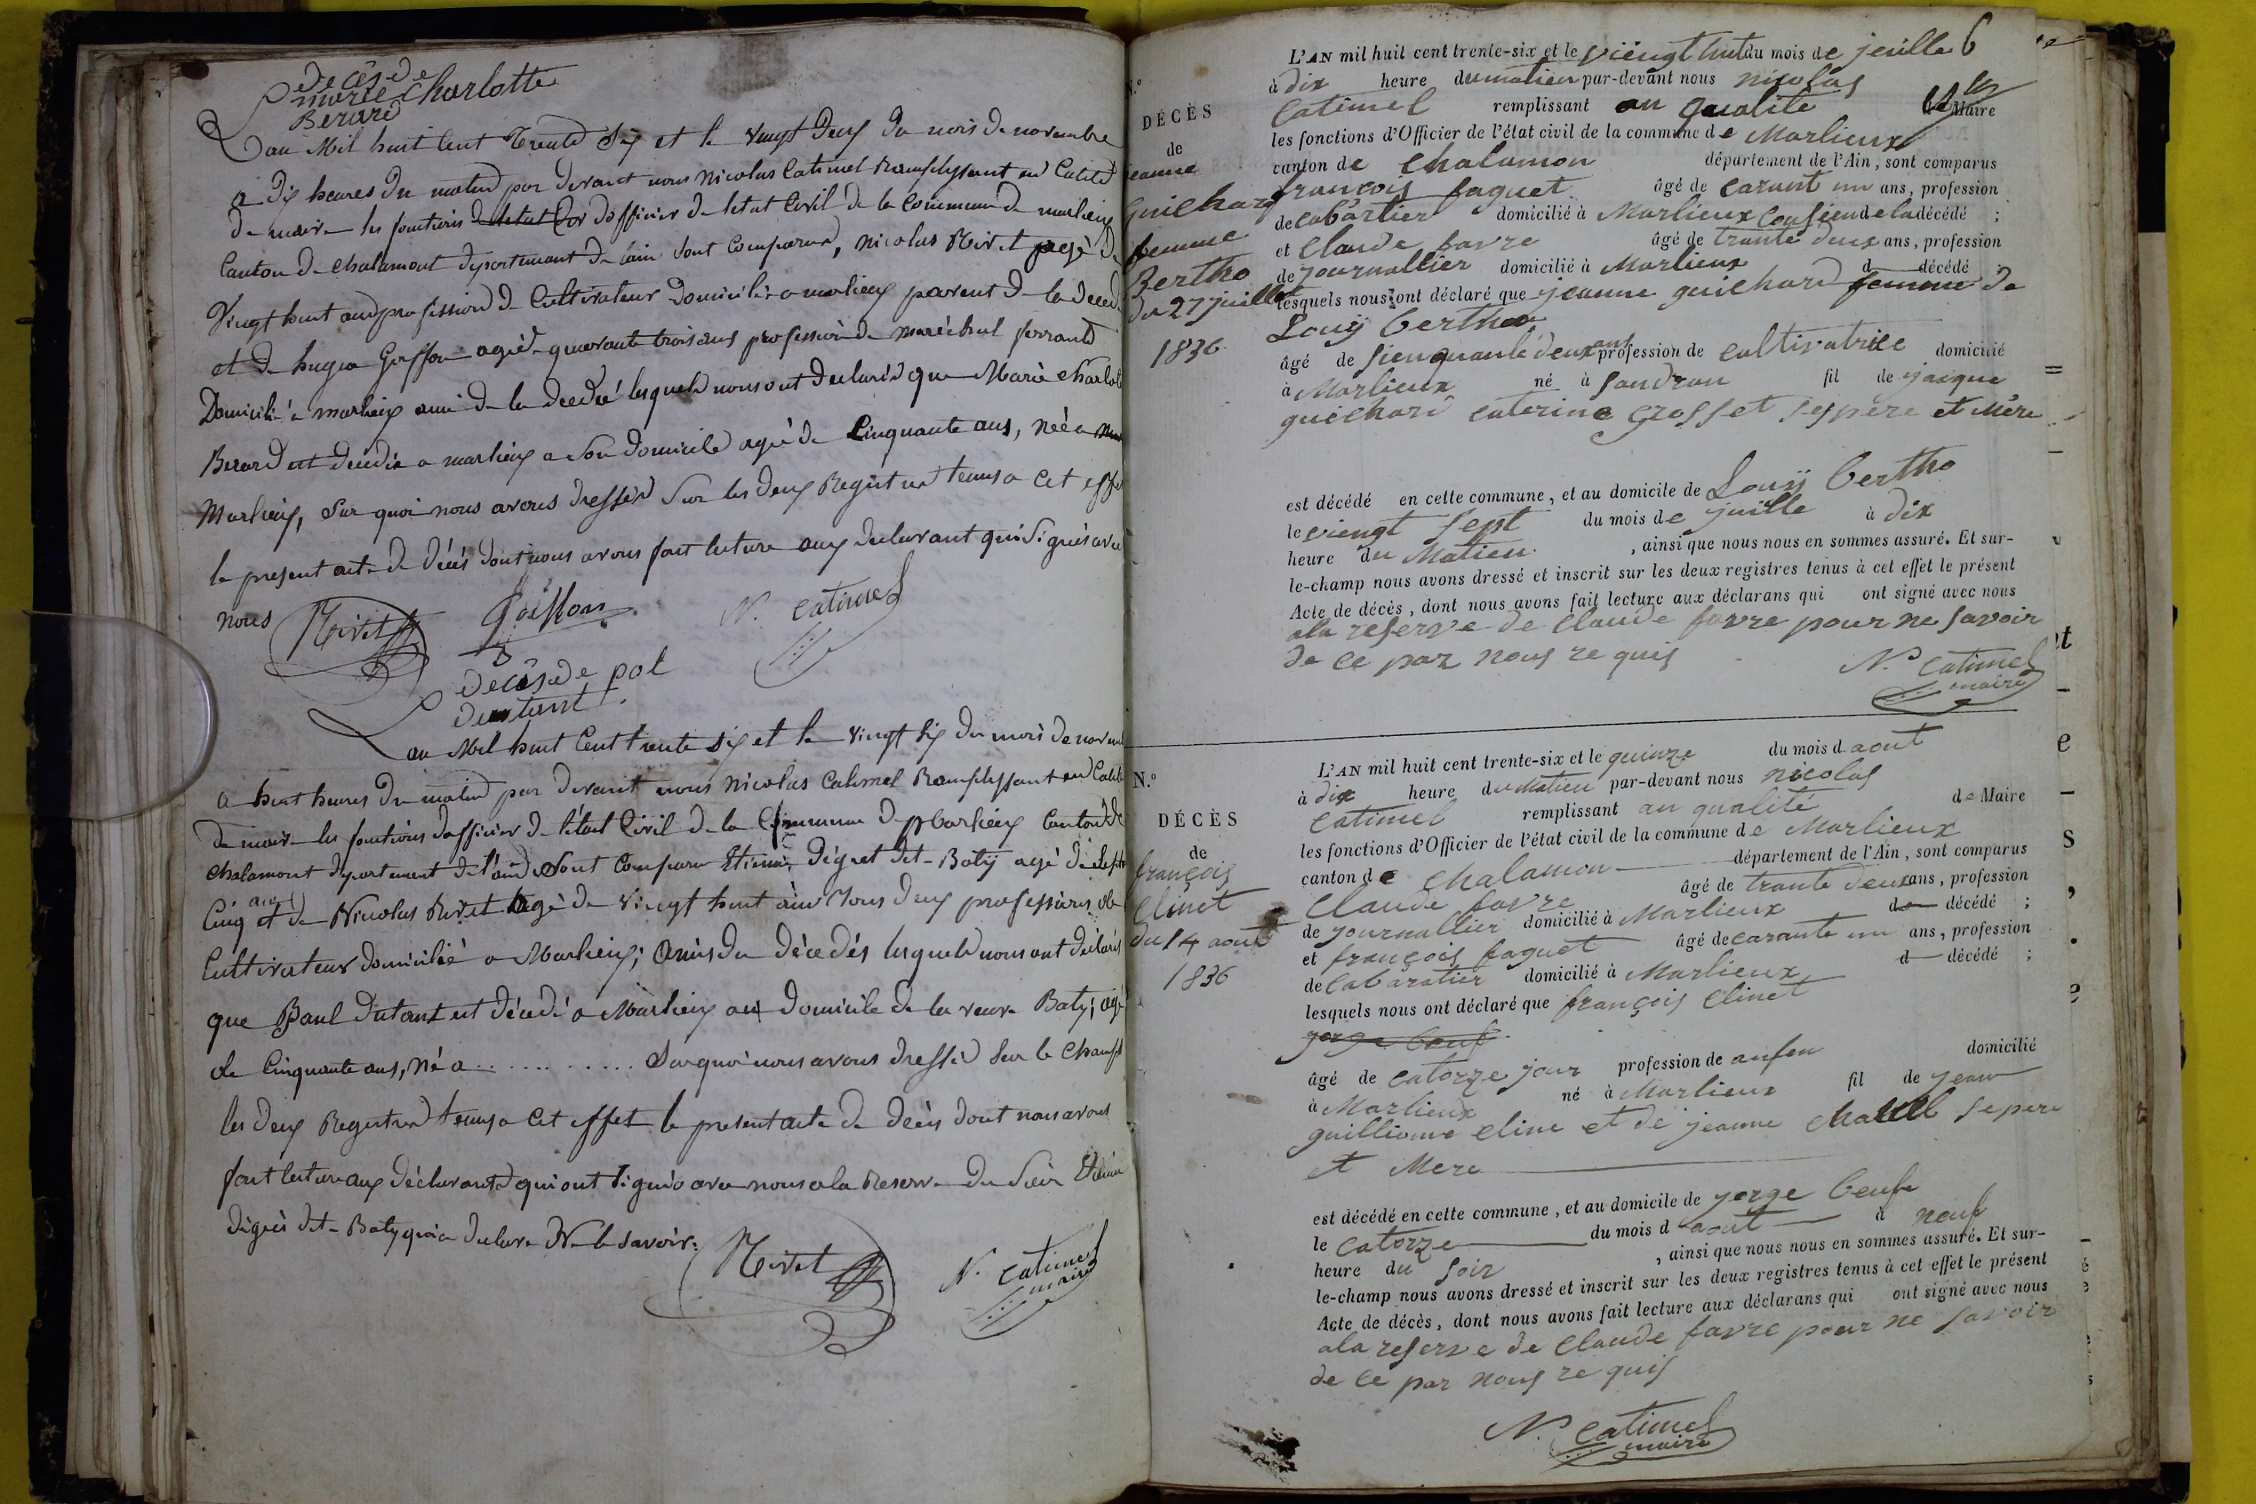 decês de
marie Charlotte
Berard
L'an Mil huit Cent Trente Six et le vingt deux du mois de novembre
a dix heures du matin par devant nous Nicolas Catimel Remplissant en Calité
de maire les fonctions d'officier de letat Civil de la Commune de marlieux
Canton de chalamont departement de l'ain Sont Comparus, nicolas Rivet agé de
Vingt huit ans profession de Cultivateur Domicilié a marlieux parent de la décedé
et de hugue Goiffon agée quarante trois ans profession de maréchal ferrant
Domicilié a marlieux ami de la decedé lesquels nous ont declarés que Marie Charlotte
Berard est decedée a marlieux a Son Domicile agé de Cinquante ans, née a
Marlieux, Sur quoi nous avons dressés Sur les deux Registres tenus a Cet effet
le present acte de décés dont nous avons fait lecture aux declarant qui Signés avec
nous Rivet Goiffon N. Catimel
decês de pol
dutant
L'an Mil huit Cent trente Six et le vingt Six du mois de novembre
a huit heures du matin par devant nous nicolas Catimel Remplissant en Calité
de maire les fonctions d'officier de l'état Civil de la Commune de Marlieux Canton de
Chalamont departement de l'ain Sont Comparu Etienne Dégret dit Baty agé de
Cinq ans et de Nicolas Rivet agé de Vingt huit ans Tous deux professions de
Cultivateur domicilié a Marlieux; Amis du décedés lesquels nous ont déclarés
que Paul Dutant est décedé a Marlieux au domicile de la veuve Baty; agé
de Cinquante ans, Né a . . . . . . . . . . Sur quoi nous avons dressés Sur le Champs
les deux Registres tenus a Cet effet le present acte de decès dont nous avons
fait lecture aux déclarants qui ont Signés avec nous a la Reserve du Sieur Etienne
Dégret dit Baty qui a declare Ne le Savoir.
Rivet N. Catimel
maire
L'AN mil huit cent trente-six et le viengt huit du mois de jeuille 6
N.º
à dix heure du matien par-devant nous nicolas
Catimel remplissant an qualite de Maire
DÉCÈS
les fonctions d'Officier de l'état civil de la commune de Marlieux
de
canton de Chalamon département de l'Ain, sont comparus
jeanne
françois faguet âgé de carant un ans, profession
Guichard
de Cabartier domicilié à Marlieux Cousien de la décédé ;
femme
et Claude favre âgé de trante deux ans, profession
Bertho
de journallier domicilié à Marlieux d décédé ;
du 27 juillet
lesquels nous ont déclaré que jeanne guichard femme de
Louÿ bertho
1836
âgé de sienquante deux ans profession de cultivatrice domicilié
à Marlieux né à Sandran fil de jacque
guichard caterine grosset ses père et Mère
est décédé en cette commune, et au domicile de Louÿ bertho
le viengt sept du mois de juille à dix
heure du Matien , ainsi que nous nous en sommes assuré. Et sur-
le-champ nous avons dressé et inscrit sur les deux registres tenus à cet effet le présent
Acte de décès, dont nous avons fait lecture aux déclarans qui ont signé avec nous
ala reserve de Claude favre pour ne savoir
de ce par nous requis
N. Catimel
maire
L'AN mil huit cent trente-six et le quinze du mois d aout
N.º
à dix heure du Matien par-devant nous nicolas
Catimel remplissant an qualité de Maire
DÉCÈS
les fonctions d'Officier de l'état civil de la commune de Marlieux
de
canton de Chalamon département de l'Ain, sont comparus
françois
Claude favre âgé de trante deux ans, profession
Clinet
de journallier domicilié à Marlieux d décédé ;
du 14 aout
et françois faguet âgé de carante un ans, profession
1836
de Cabaratier domicilié à Marlieux d décédé ;
lesquels nous ont déclaré que françois Clinet
âgé de catorze jour profession de anfan domicilié
à Marlieux né à Marlieux fil de jean
guillieme cline et de jeanne sepere
et Mere
est décédé en cette commune, et au domicile de yorge beuf
le catorze du mois d aout à neuf
heure du soir , ainsi que nous nous en sommes assuré. Et sur-
le-champ nous avons dressé et inscrit sur les deux registres tenus à cet effet le présent
Acte de décès, dont nous avons fait lecture aux déclarans qui ont signé avec nous
ala reserve de Claude favre pour ne savoir
de ce par nous requis
N. Catimel
maire